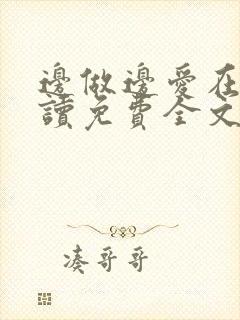 邊做邊愛在
讀免費全文
凑哥哥